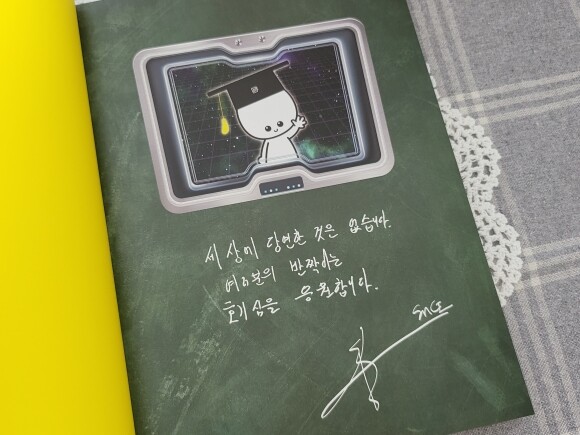 세상에 당연한 것은 없습니다.
여러분의 반짝이는
호기심을 응원합니다.